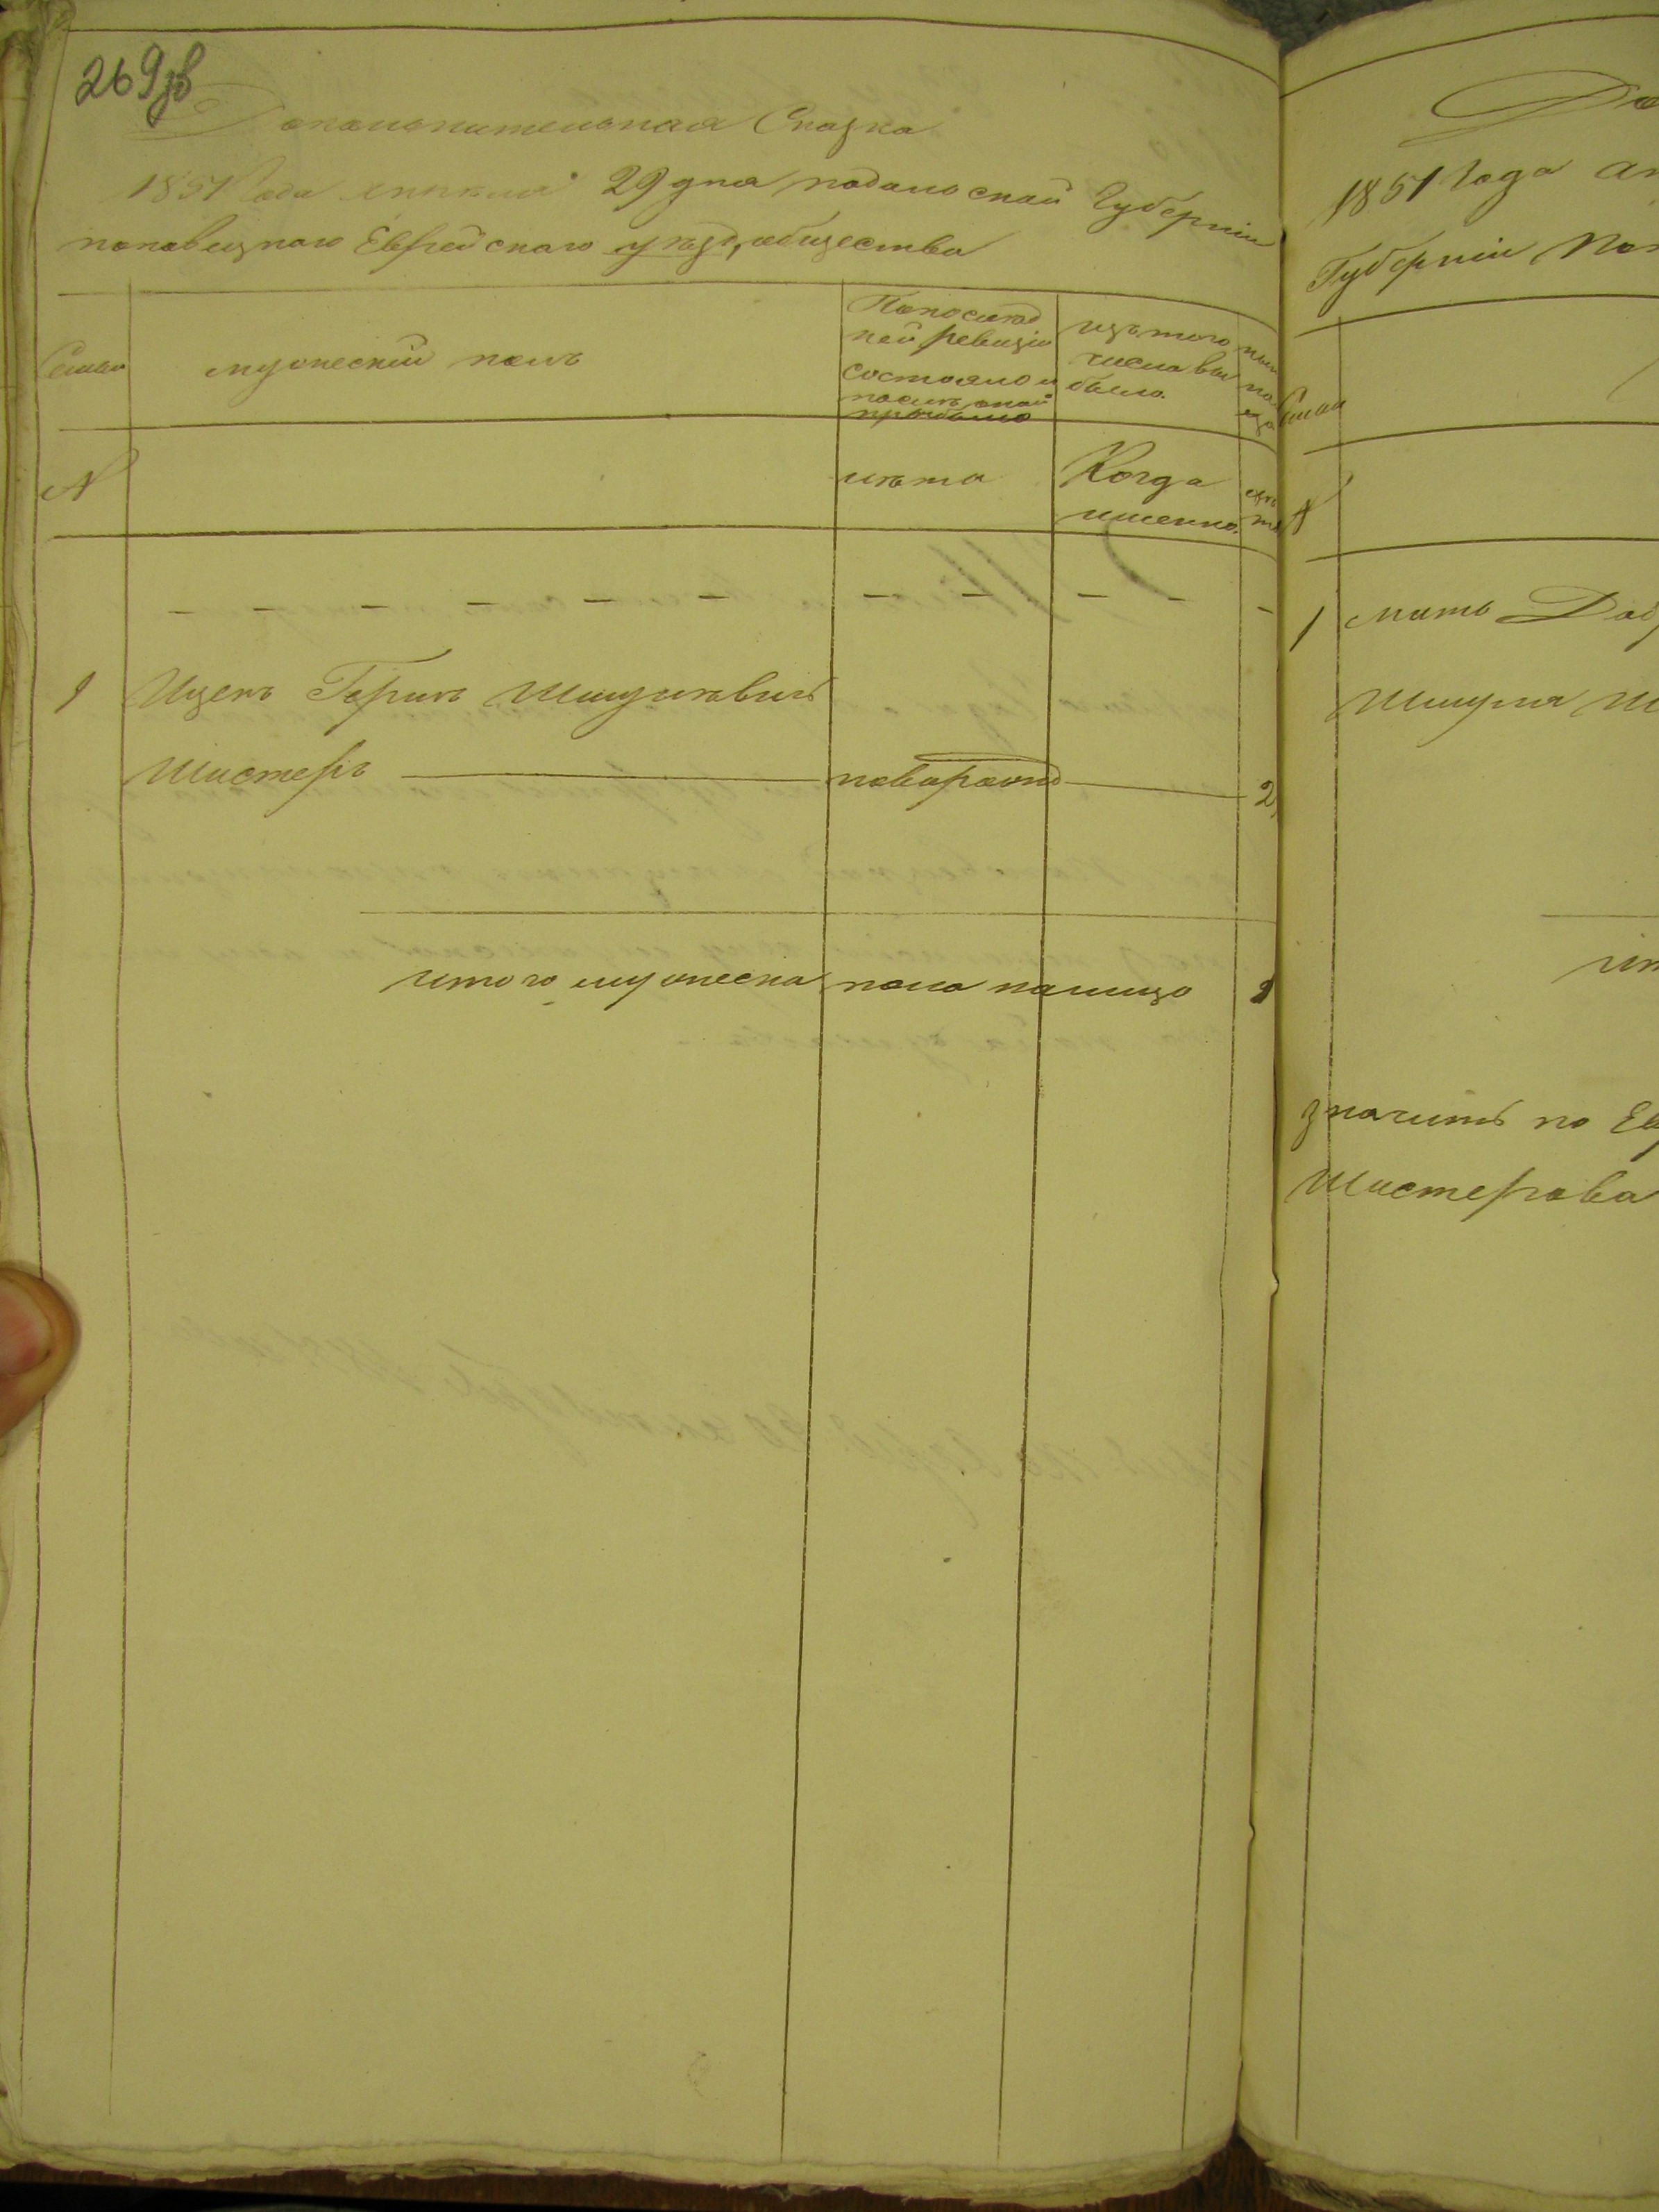 269зв
Дополнительная Сказка
1851 Года апреля 29 дня подольской Губернии
поповецкаго Еврейскаго уезд, общества
Семьи
мужеский полъ
По послед
ней ревизіи
состояло и
после оной
прибыло
изъ того
числа вы
было.
№
лета
Когда
именно.
1 Ицекъ Гершъ Шмулевичъ
Шистеръ новорожд 2
итого мужеска пола налицо
1851 Года
Губерніи
Семьи
№
1 мать
Шмуля
значитъ по
Шистерова